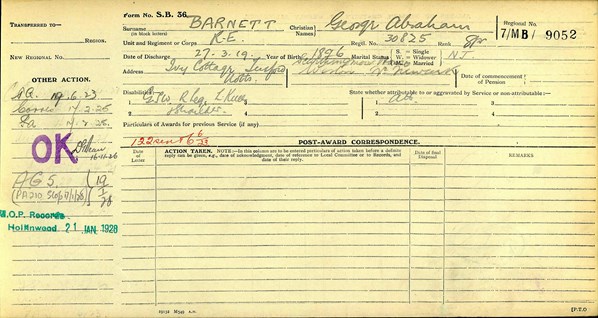 TRANSFERRED TO—
REGION.
NEW REGIONAL NO.
OTHER ACTION.
19.6.23
OK
16-11-26
AG5
W.O.P. Records
Hollinwood 21 JAN 1928
Form No. S.B. 36.
Surname (in block letters) BARNETT
Christian Names George Abraham
Regional No. 7/MB/ 9052
Unit and Regiment or Corps R.E.
Regtl. No. 30825 Rank Spr
Date of Discharge 27.3.19. Year of Birth 1896 Marital Status
S. = Single
W. = Widower
M. = Married
Address Ivy Cottage, Tuxford
Notts
Date of commencement of Pension
Disabilities 1 GSW R Leg, L Knee
2 Shoulder
State whether attributable to or aggravated by Service or non-attributable
1 Att.
2
3
4
Particulars of Awards for previous Service (if any)
POST-AWARD CORRESPONDENCE.
Date of Letter
ACTION TAKEN. NOTE:—In this column are to be entered particulars of action taken before a definite reply can be given, e.g., date of acknowledgment, date of reference to Local Committee or to Records, and date of their reply.
Date of final Disposal
REMARKS
[P.T.O